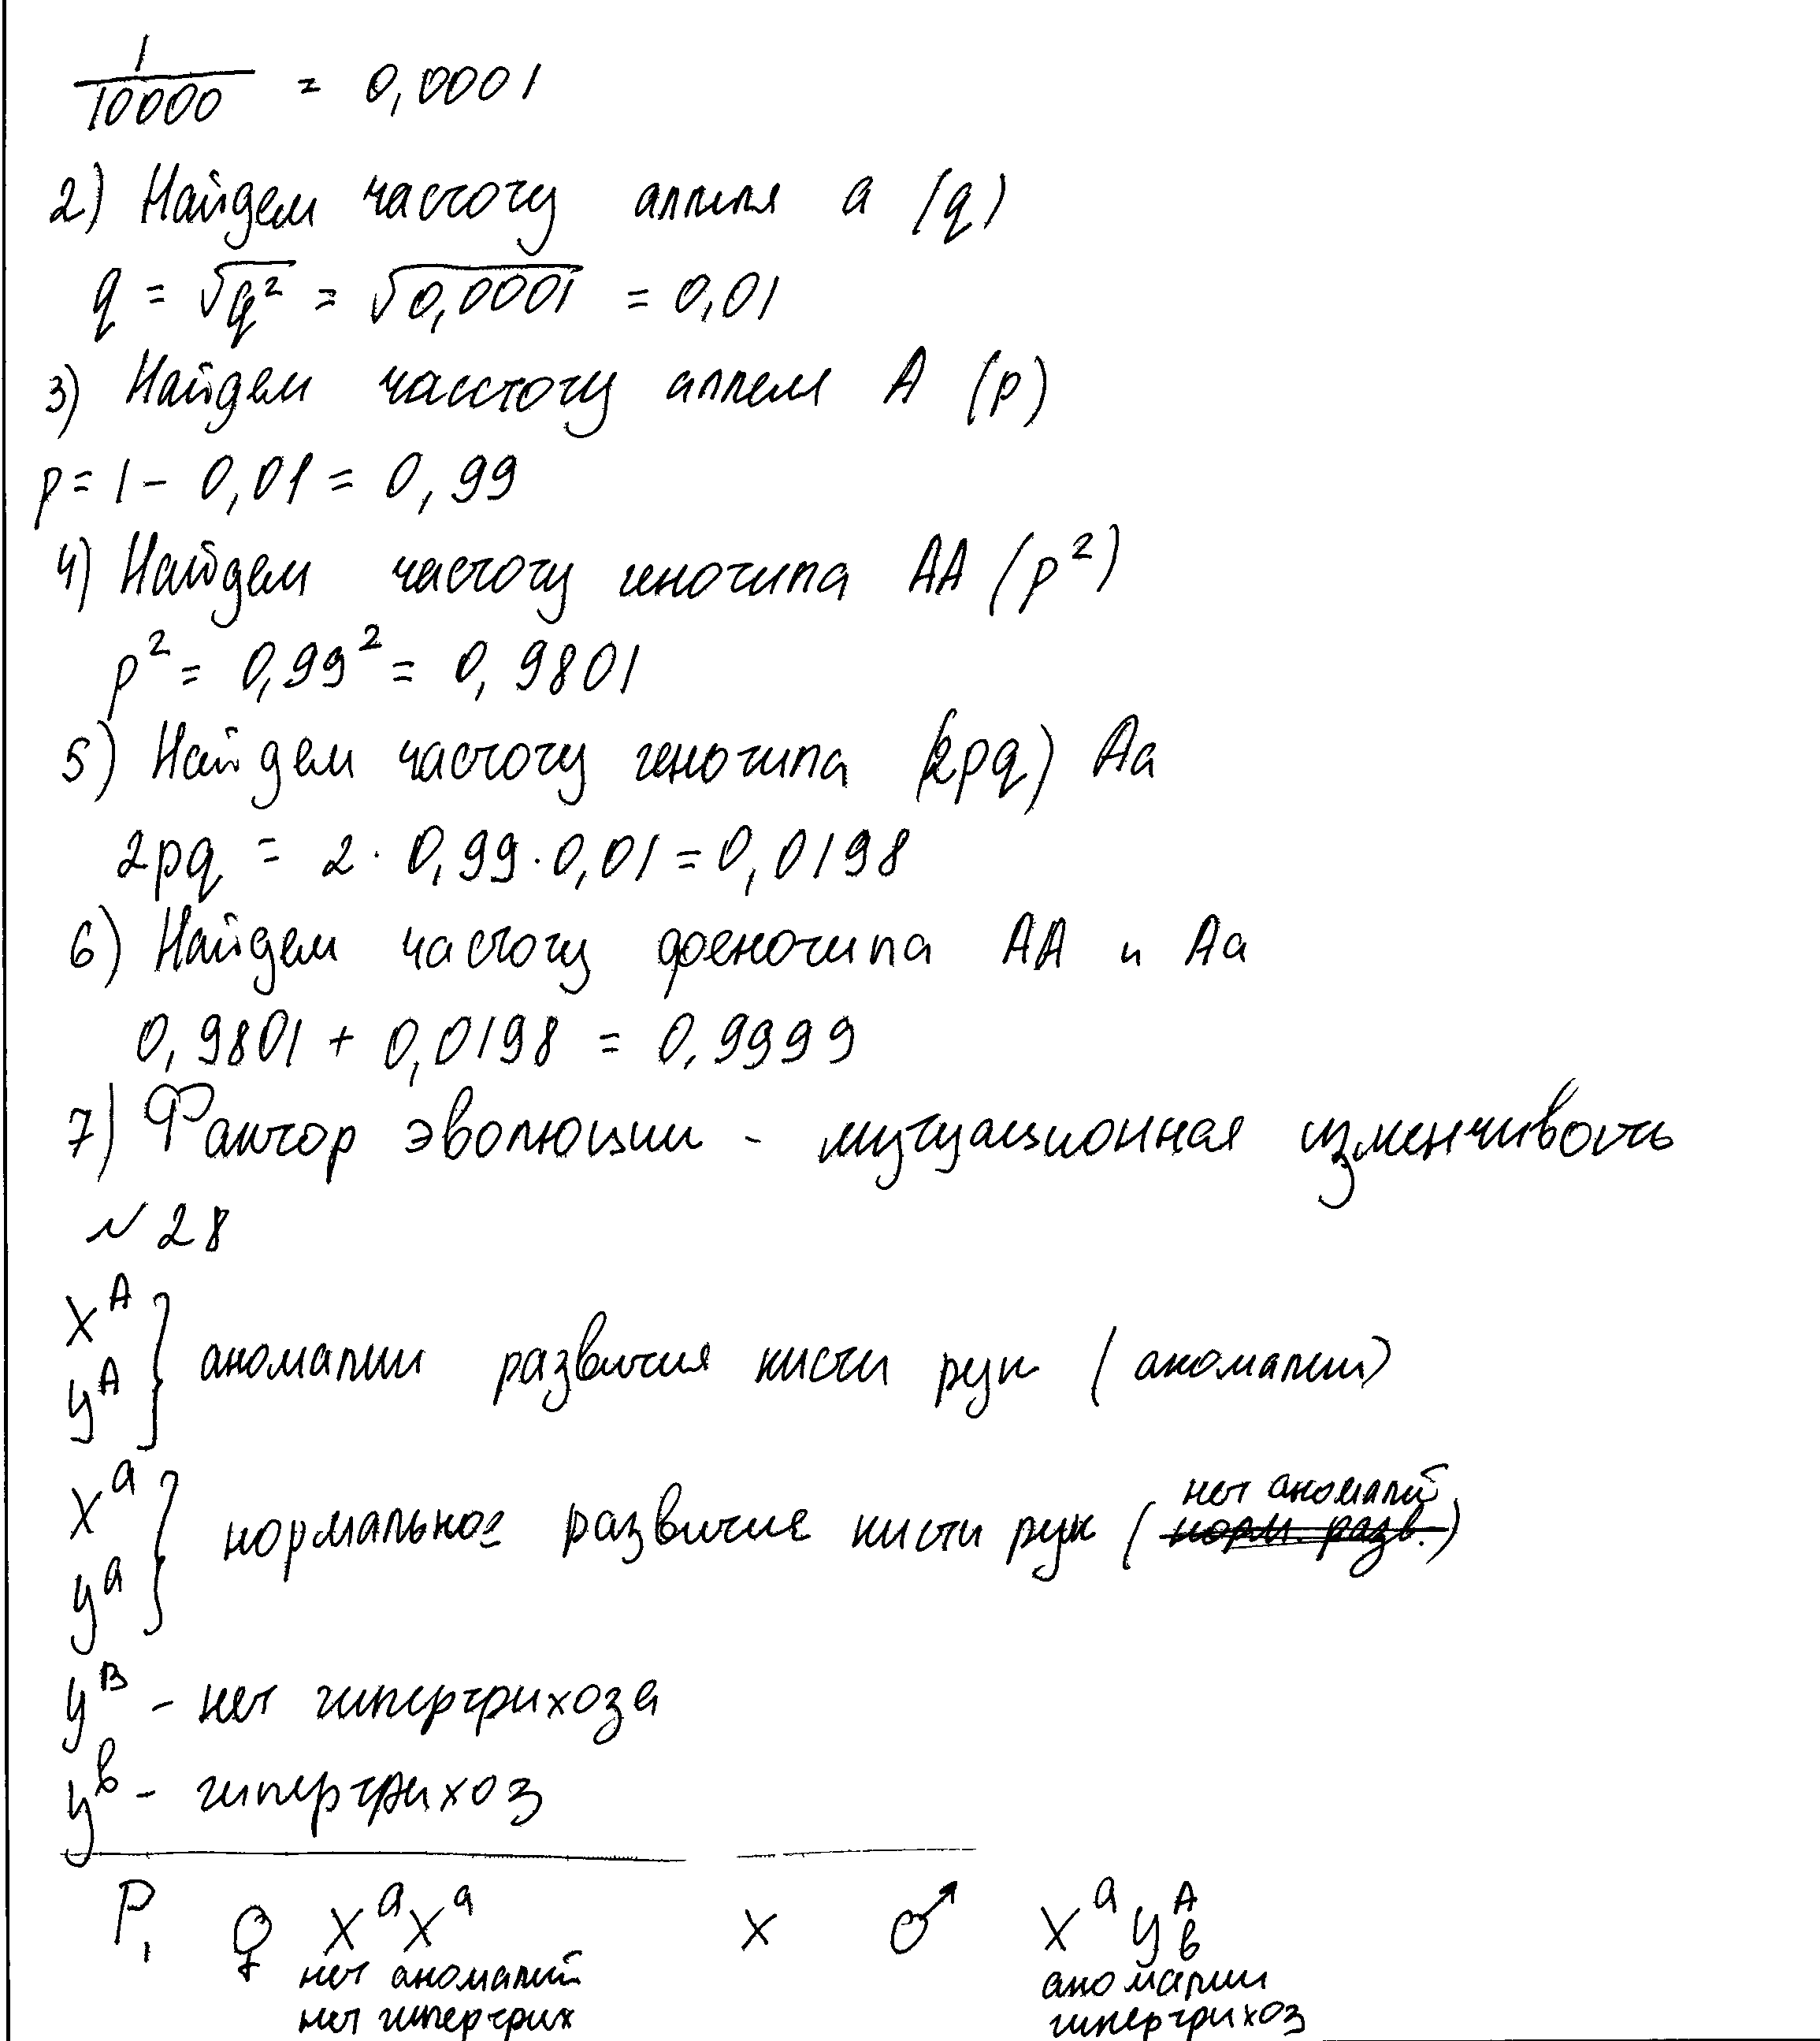 1/10000 = 0,0001
2) Найдем частоту аллеля а (q)
q = √q² = √0,0001 = 0,01
3) Найдем часстоту аллеля А (p)
p = 1 - 0,01 = 0,99
4) Найдем частоту генотипа АА (p²)
p² = 0,99² = 0,9801
5) Найдем частоту генотипа (2pq) Аа
2pq = 2 · 0,99 · 0,01 = 0,0198
6) Найдем частоту фенотипа АА и Аа
0,9801 + 0,0198 = 0,9999
7) Фактор эволюции - мутуационная изменчивость
№ 28
X^A
y^A } аномалии развития кисти рук (аномалии)
X^a
y^a } нормальное развитие кисти рук (норм. разв. нет аномалий)
y^B - нет гипертрихоза
y^b - гипертрихоз
P₁ ♀ X^a X^a x ♂ X^a y^A_b
нет аномалий аномалии
нет гипертрих гипертрихоз